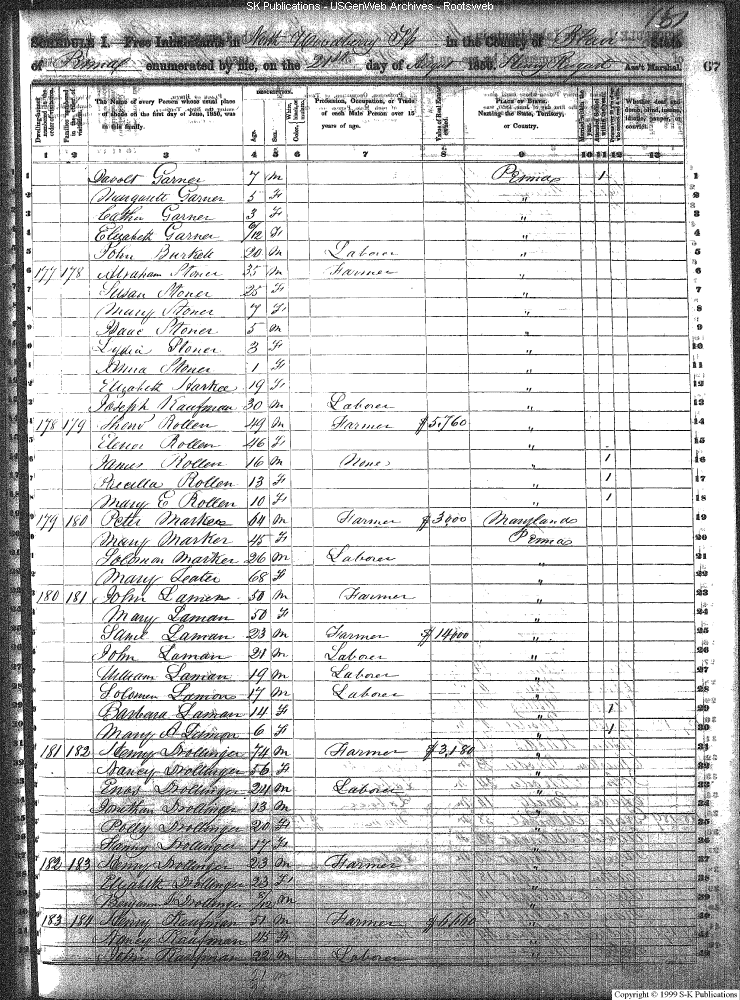 SK Publications - USGenWeb Archives - Rootsweb
SCHEDULE I.—Free Inhabitants in North Woodbury Tp in the County of Blair State
of Penna enumerated by me, on the 21st day of Augt 1850. Ass't Marshal. 67
DESCRIPTION.
Dwelling-houses numbered in the order of visitation.
Families numbered in the order of visitation.
The Name of every Person whose usual place of abode on the first day of June, 1850, was in this family.
Age.
Sex.
White, black, or mulatto.
Profession, Occupation, or Trade of each Male Person over 15 years of age.
Value of Real Estate owned.
PLACE OF BIRTH. Naming the State, Territory, or Country.
Whether deaf and dumb, blind, insane, idiotic, pauper, or convict.
1 2 3 4 5 6 7 8 9 10 11 12 13
1 Garner 7 m Penna 1 1
2 Margarett Garner 5 F " 2
3 Cathn Garner 3 F " 3
4 Elizabeth Garner 9/12 F " 4
5 John Burkett 20 m Laborer " 5
6 177 178 Abraham Stoner 35 m Farmer " 6
7 Susan Stoner 25 F " 7
8 Mary Stoner 7 F " 8
9 Isaac Stoner 5 m " 9
Lydia Stoner 3 F " 10
Stoner 1 F " 11
Elizabeth 19 F " 12
Joseph Kaufman 30 m Laborer " 13
178 179 Rollen 49 m Farmer $5,760 " 14
Elenor Rollen 46 F " 15
James Rollen 16 m None " 1 16
Rollen 13 F " 1 17
Mary E Rollen 10 F " 1 18
179 180 Peter Marker 64 m Farmer $3000 Maryland 19
Mary Marker 45 F Penna 20
Solomon Marker 26 m Laborer " 21
Mary 68 F " 22
180 181 John Lamen 50 m Farmer " 23
Mary Laman 50 F " 24
Laman 23 m Farmer $14000 " 25
John Laman 21 m Laborer " 26
William Laman 19 m Laborer 27
Solomon Lamon 17 m Laborer 28
Barbara Laman 14 F " 1 29
Mary A Lamon 6 F " 1 30
181 182 Henry Trollinger 74 m Farmer $3,180 " 31
Nancy Trollinger 56 F " 32
Enos Trollinger 24 m Laborer " 33
Jonathan Trollinger 13 m " 34
Polly Trollinger 20 F " 35
Trollinger 17 F " 36
182 183 Henry Trollinger 23 m Farmer " 37
Elizabeth Trollinger 23 F " 38
Benjamin F Trollinger m " 39
183 184 Henry Kaufman 51 m Farmer " 40
Nancy Kaufman 45 F " 41
John Kaufman 22 m Laborer " 42
Copyright © 1999 S-K Publications